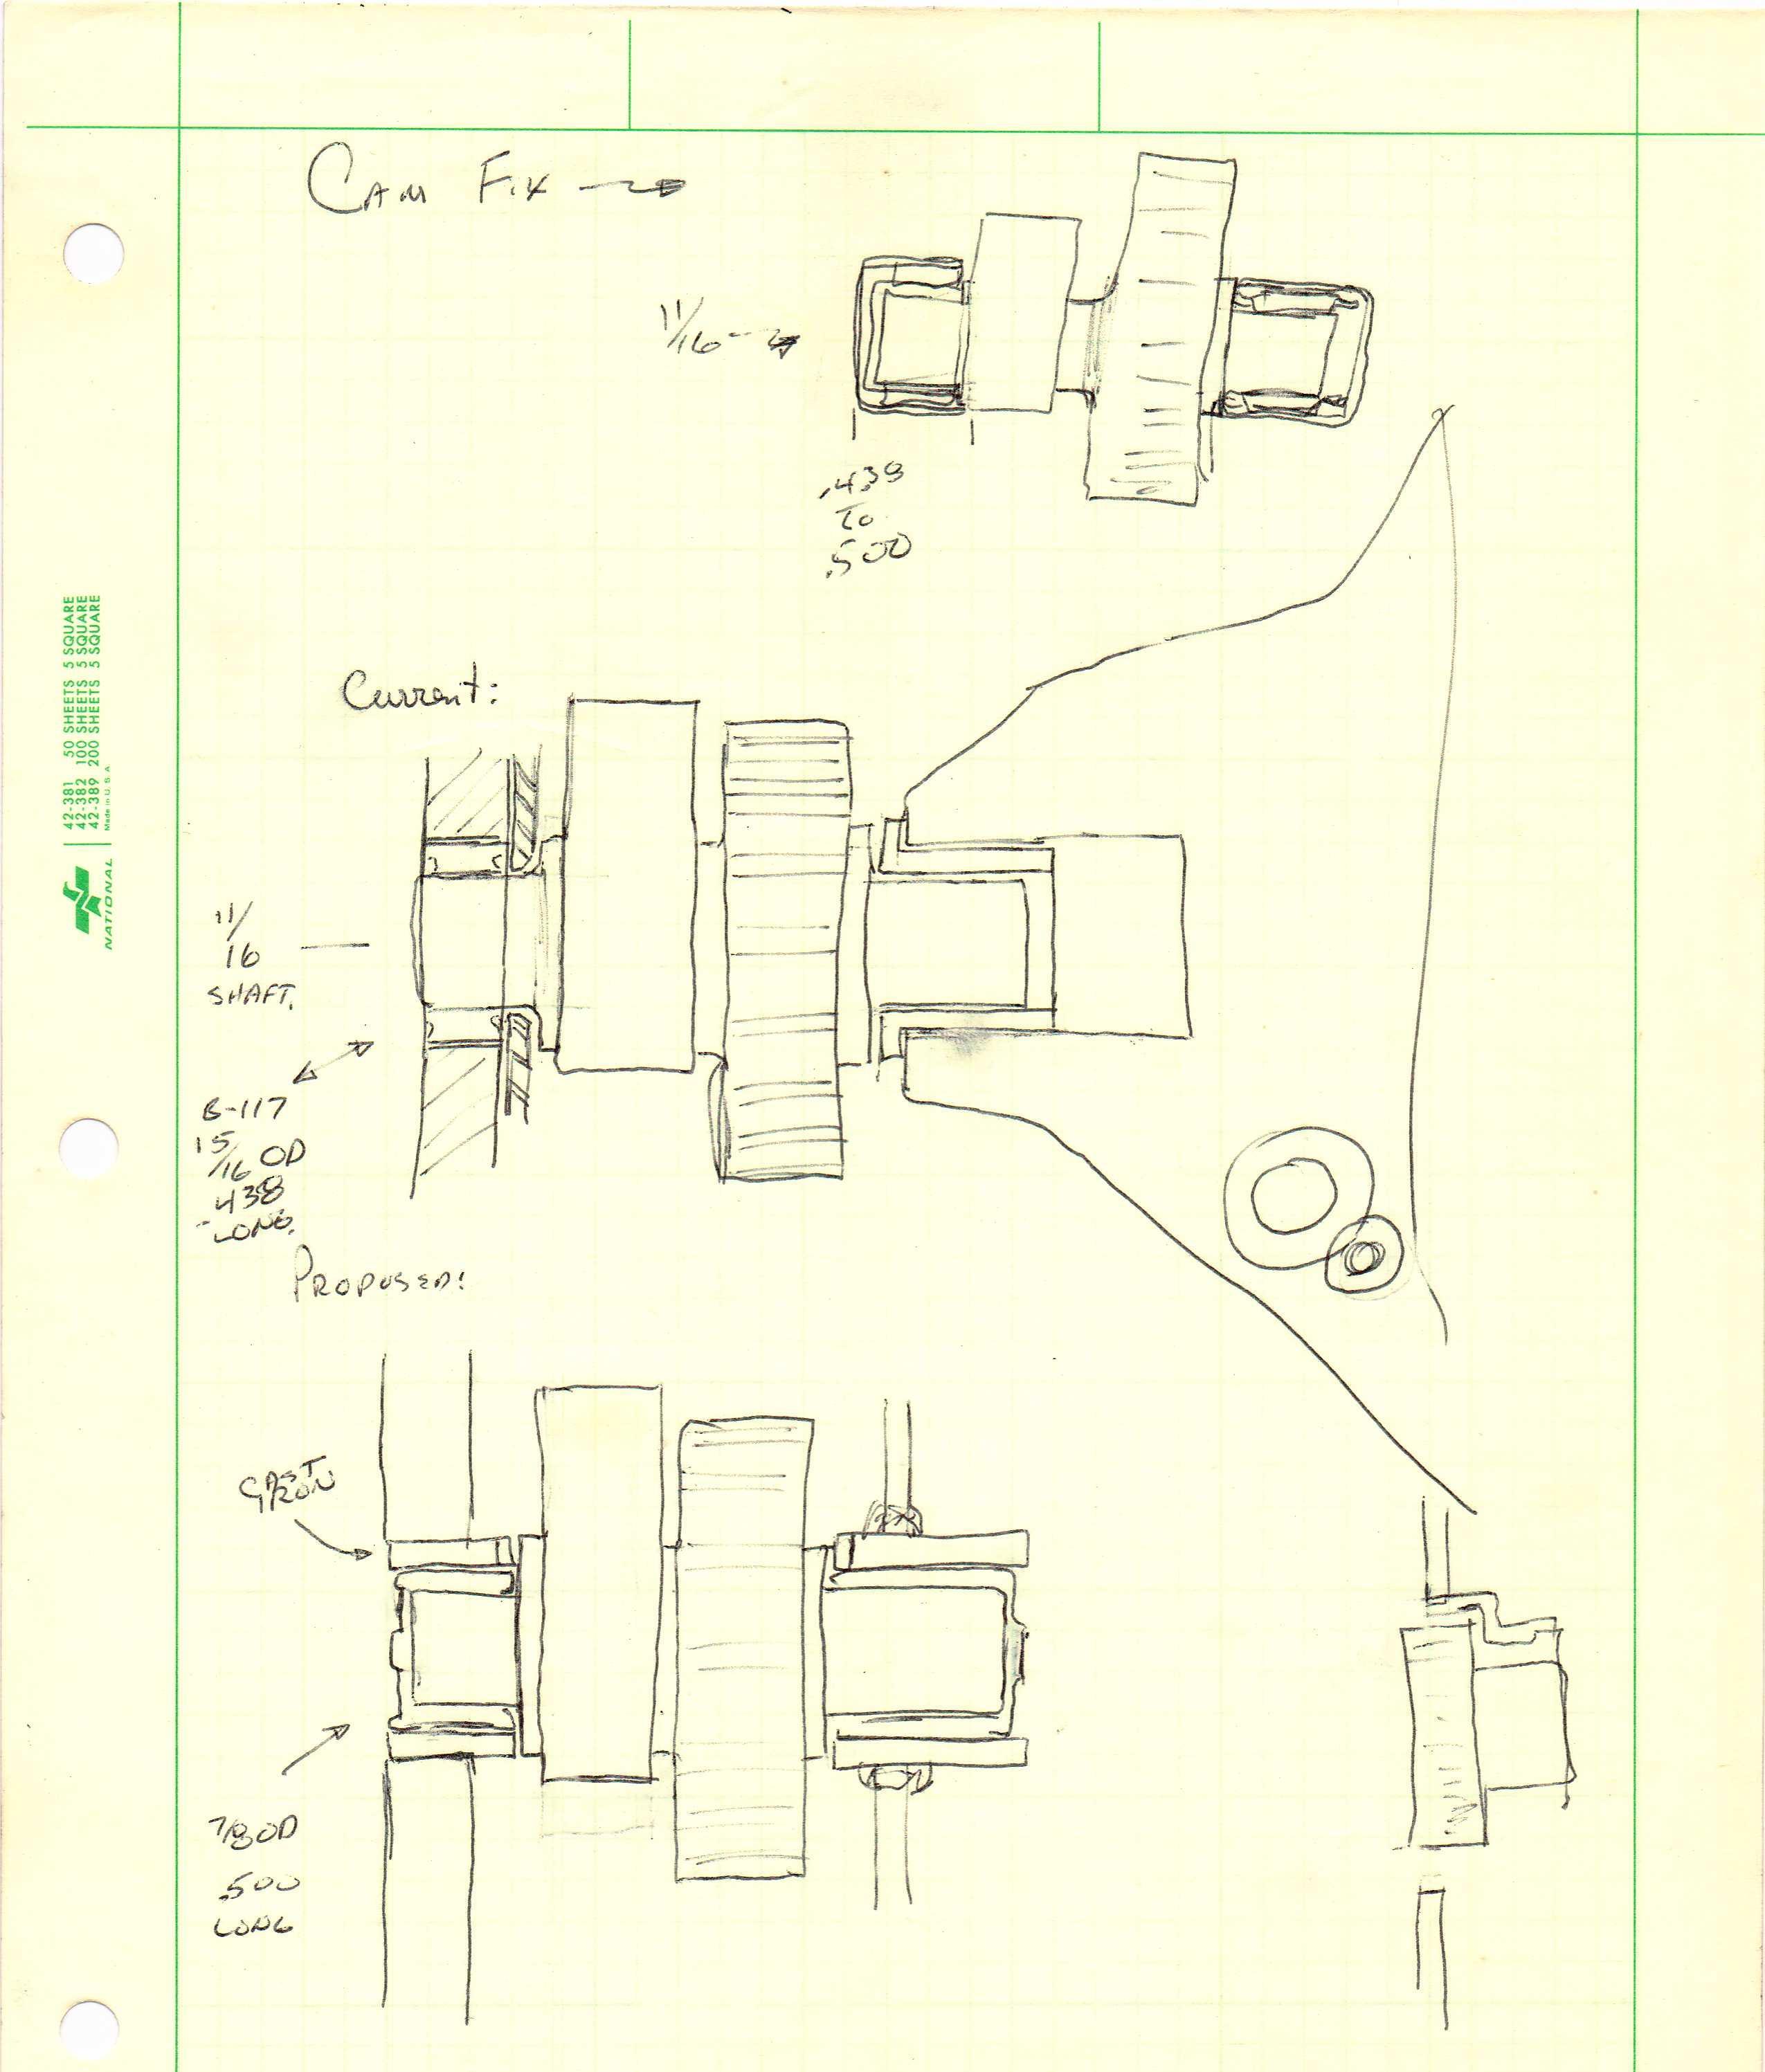 CAM FIX
11/16
.438
TO
.500
Current:
11/
16
SHAFT.
B-117
15/16 OD
.438
LONG.
PROPOSED:
CAST
IRON
7/8 OD
.500
LONG
42-381 50 SHEETS 5 SQUARE
42-382 100 SHEETS 5 SQUARE
42-389 200 SHEETS 5 SQUARE
Made in U.S.A.
NATIONAL